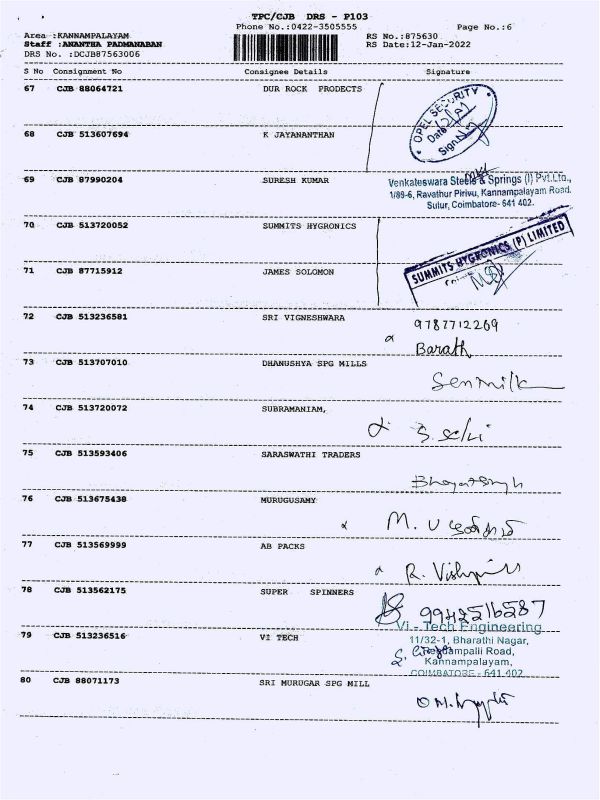 TPC/CJB DRS - P103
Phone No.:0422-3505555
Page No.:6
Area :KANNAMPALAYAM
RS No.:875630
Staff :ANANTHA PADMANABAN
RS Date:12-Jan-2022
DRS No. :DCJB87563006
S No Consignment No Consignee Details Signature
67 CJB 88064721 DUR ROCK PRODECTS
OPEL SECURITY
Date
Sign
68 CJB 513607694 K JAYANANTHAN
69 CJB 87990204 SURESH KUMAR
Venkateswara Steels & Springs (I) Pvt.Ltd.,
1/89-6, Ravathur Pirivu, Kannampalayam Road.
Sulur, Coimbatore- 641 402.
70 CJB 513720052 SUMMITS HYGRONICS
SUMMITS HYGRONICS (P) LIMITED
71 CJB 87715912 JAMES SOLOMON
72 CJB 513236581 SRI VIGNESHWARA
9787712269
Barath
73 CJB 513707010 DHANUSHYA SPG MILLS
Senmilk
74 CJB 513720072 SUBRAMANIAM,
S. selvi
75 CJB 513593406 SARASWATHI TRADERS
76 CJB 513675438 MURUGUSAMY
M.
77 CJB 513569999 AB PACKS
R.
78 CJB 513562175 SUPER SPINNERS
9942516587
Vi - Tech Engineering
79 CJB 513236516 VI TECH
11/32-1, Bharathi Nagar,
Road,
Kannampalayam,
COIMBATORE - 641 402
80 CJB 88071173 SRI MURUGAR SPG MILL